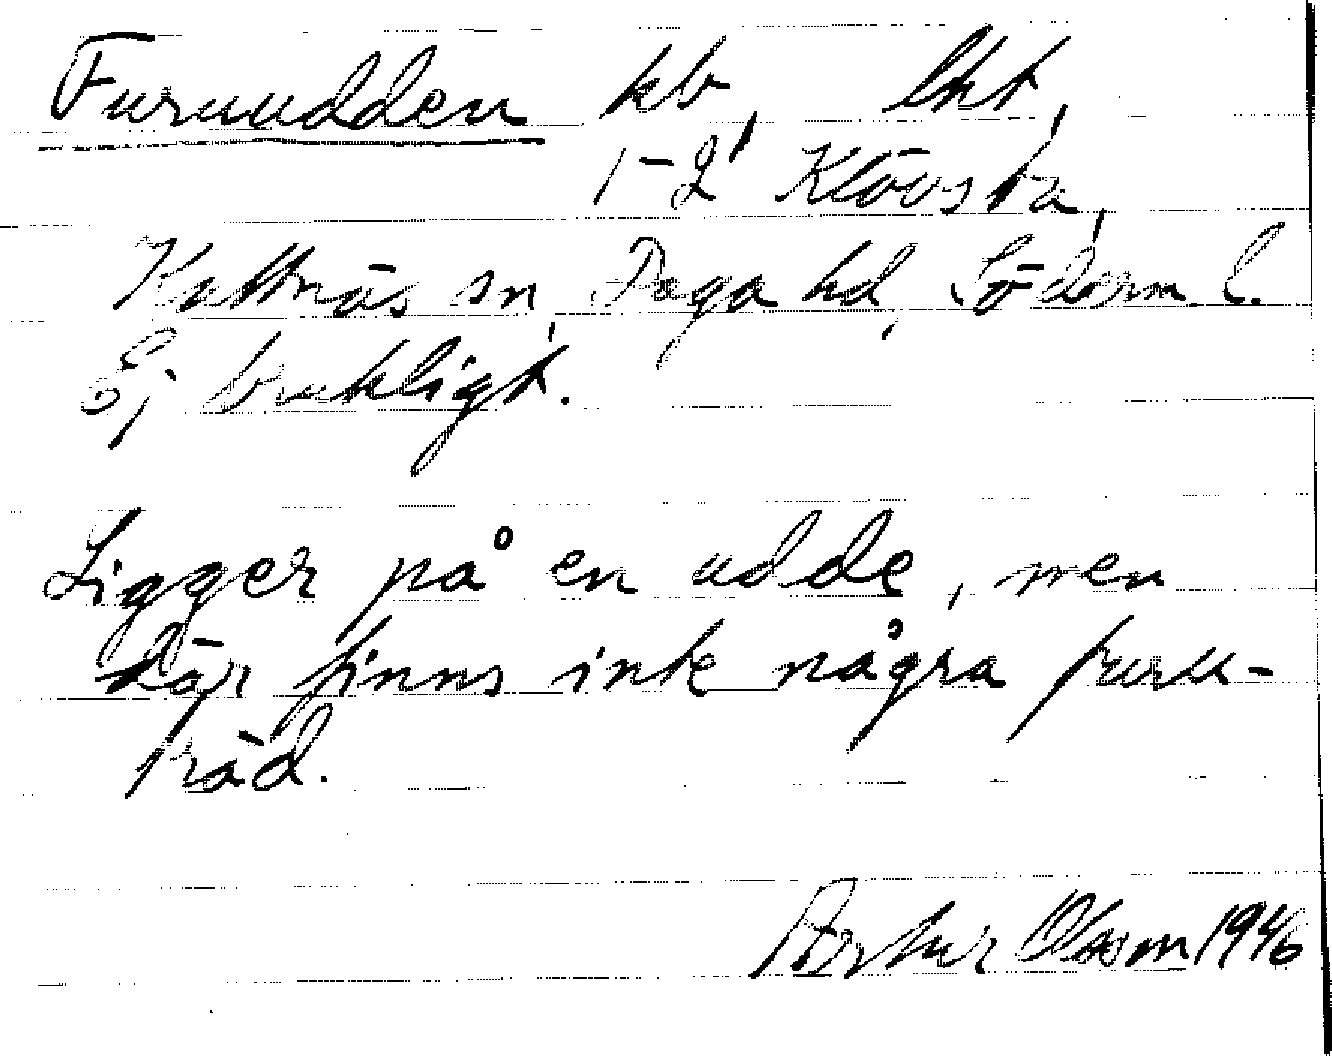 Furuudden kb, lht,
1-2 Klövsta,
Kattnäs sn, Daga hd, Söderm. l.
Ej brukligt.
Ligger på en udde, men
där finns inte några furu-
träd.
Arthur Olsson 1946